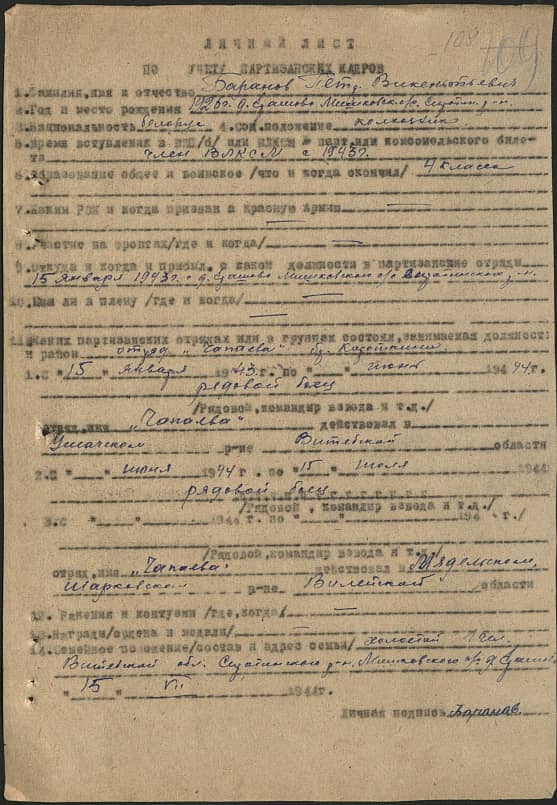 108 104
ЛИЧНЫЙ ЛИСТ
ПО УЧЕТУ ПАРТИЗАНСКИХ КАДРОВ
1.Фамилия,имя и отчество Баранов Петр Викентьевич
2.Год и место рождения 1926г. д. Суашово
3.Национальность белорус 4.соц.положение колхозник
5.Время вступления в ВКП/б/ или ВЛКСМ № парт.или комсомольского биле-
та член ВЛКСМ с 1943г.
6.Образование общее и воинское /что и когда окончил/ 4 класса
7.Каким РВК и когда призван в Красную Армию —
8.Участие на фронтах/где и когда/ —
9.Откуда и когда прибыл, с какой должности в партизанские отряды
15 Января 1943г. д. Суашово Мишковского с/с
10.Был ли в плену /где и когда/ —
—
11.В каких партизанских отрядах или в группах состоял,занимаемая должность
и район отряд "Чапаева" бр. Короткина
1.С "15" января 1943.г. по " " июнь 1944 г.
рядовой боец
/Рядовой,командир взвода и т.д./
отряд,имя "Чапаева" действовал в
Ушачском р-не Витебской области
2.С " " июня 1944 г. по "15" июля 1944
рядовой боец
/Рядовой, командир взвода и т.д./
3.С " " 1944 г. по " " 194 г./
/Рядовой,командир взвода и т.д./
отряд,имя "Чапаева" действовал в Мядельском,
Шарковском р-не Вилейской области
12. Ранения и контузии /где,когда/ —
13.Награды/ордена и медали/ —
14.Семейное положение/состав и адрес семьи/ холостой 1 чел.
Витебской обл. р-н. Мишковского с/с д. Суашово
"15" VII 1944г.
Личная подпись Баранов.